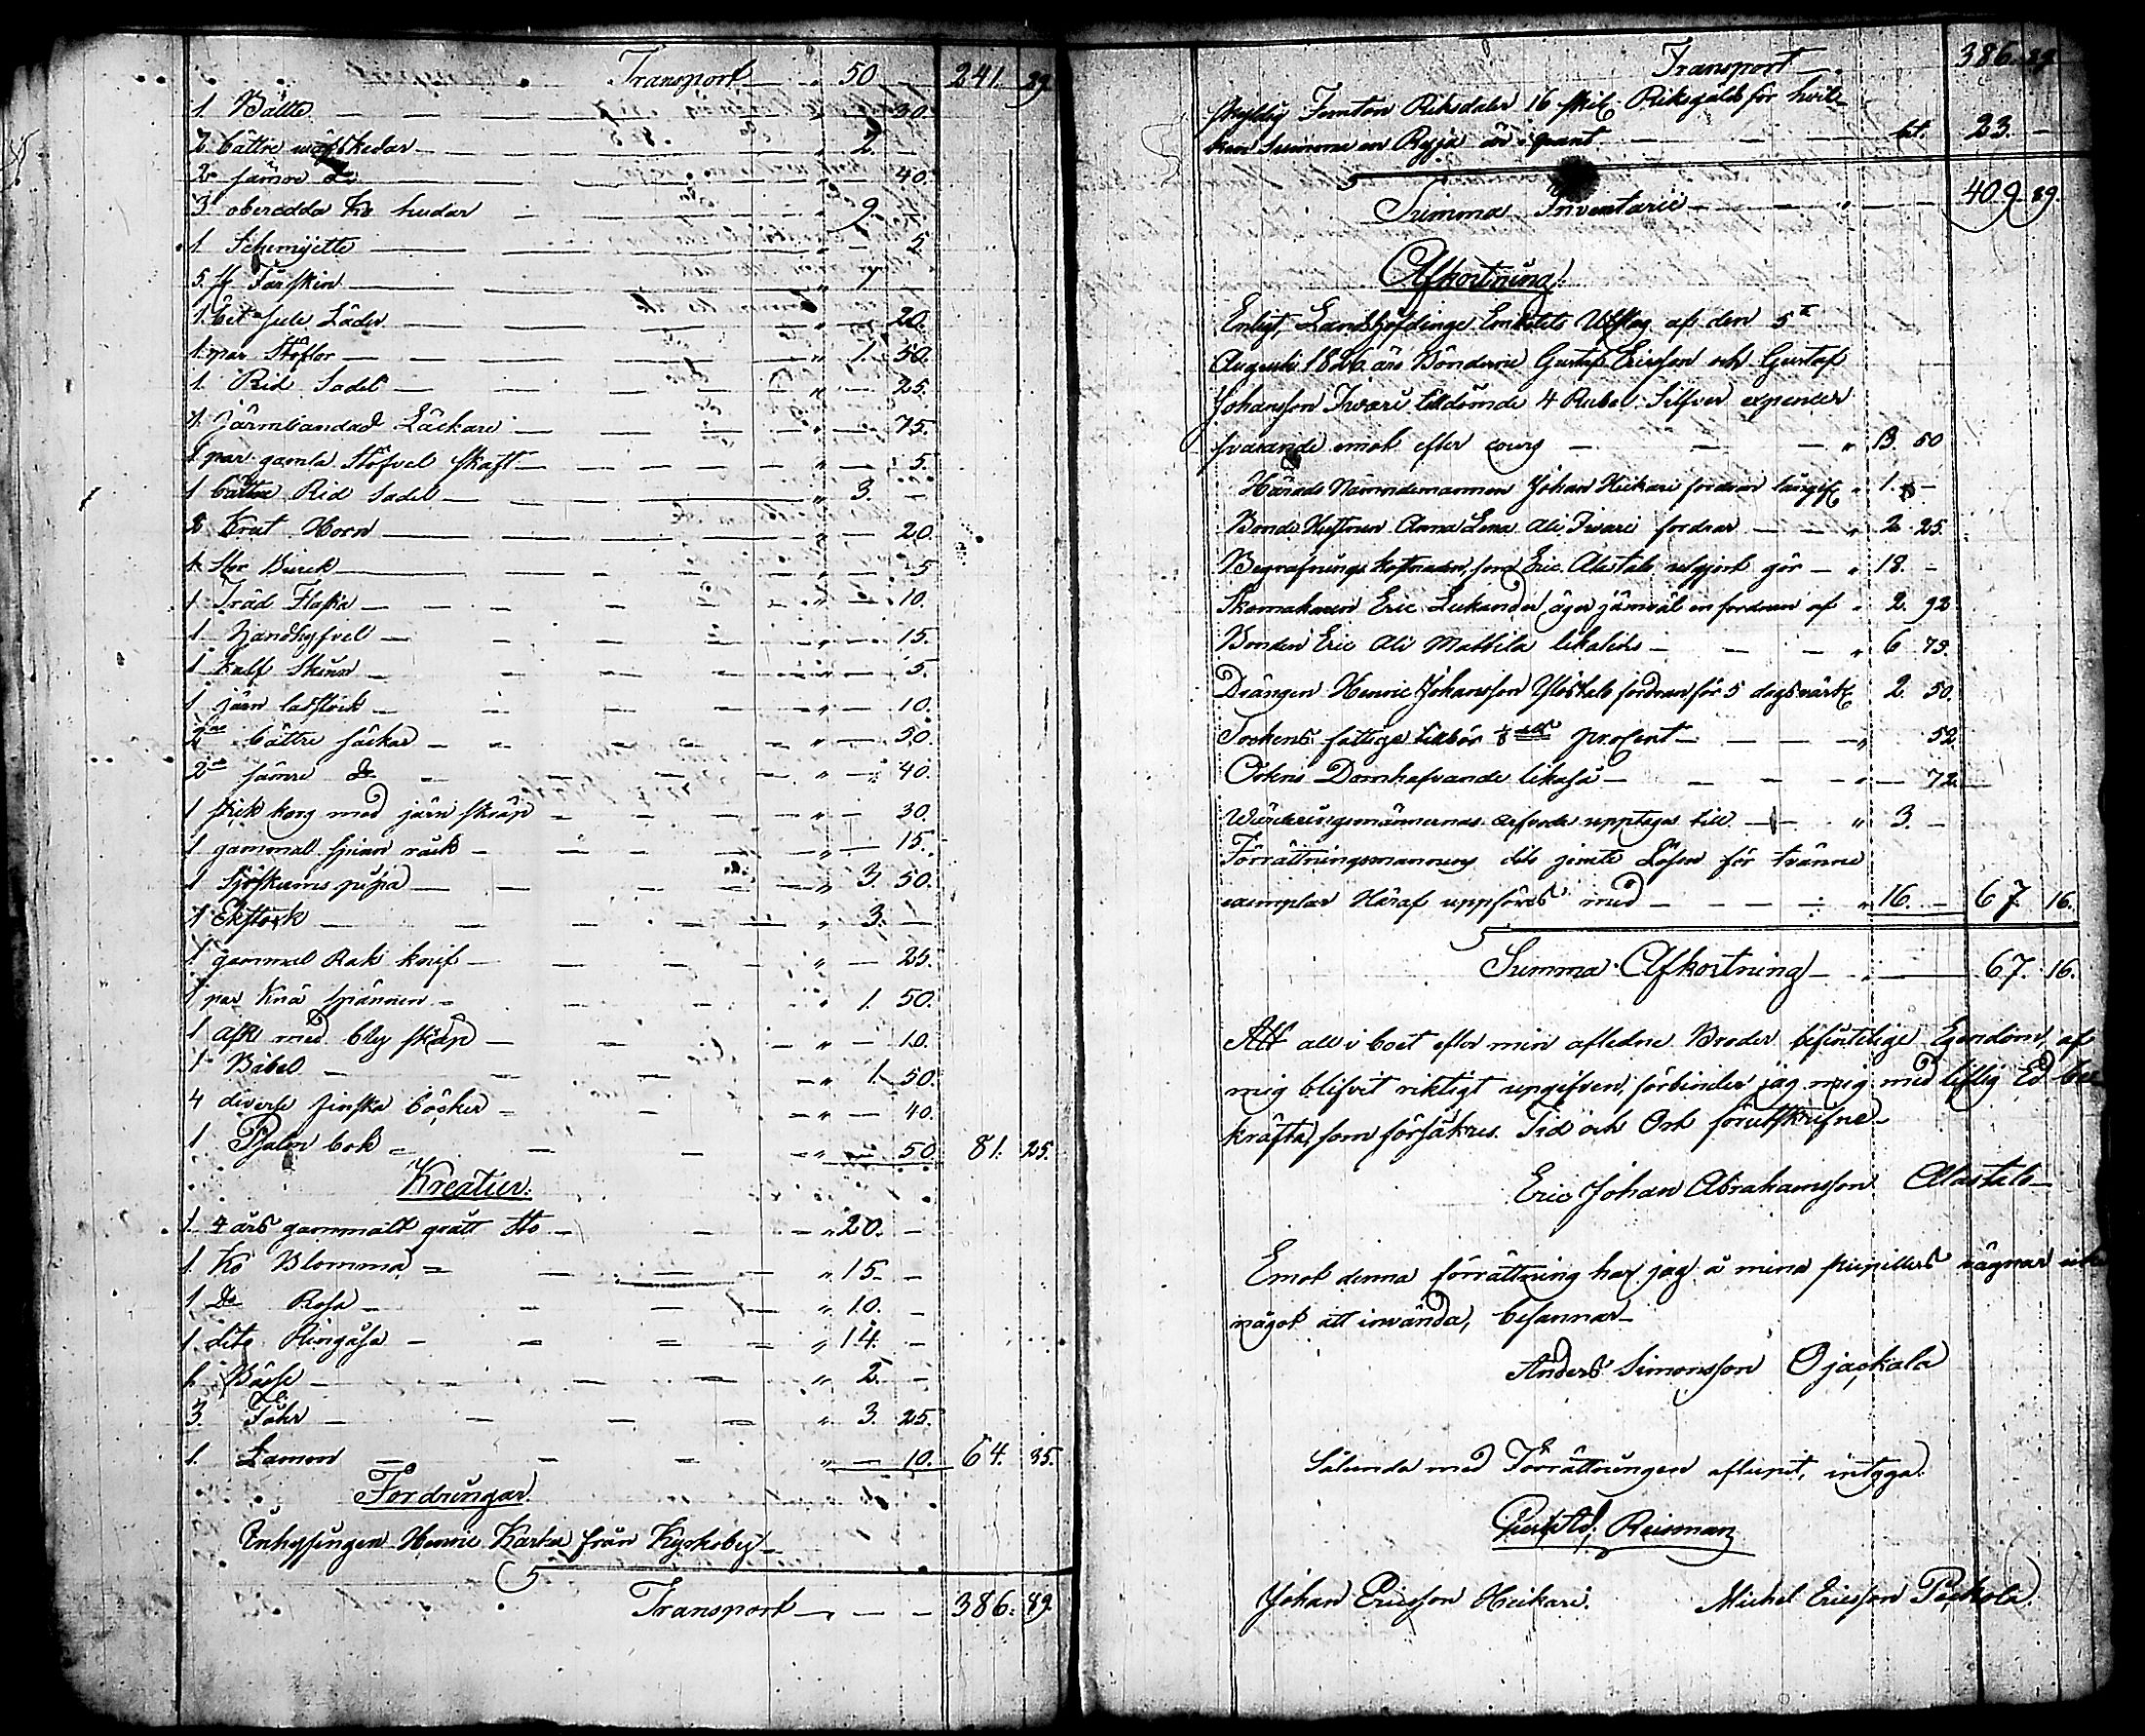 Transport — „ 50 — 241. 29.
1 Bälte — „ — 30.
2 bättre skedar — „ 2. —
2 sämre do — „ — 40.
3 oberedda Ko hudar — „ 9 —
1 — „ — 5.
5 st Fårskin — „ 1 —
1 bit Läder — „ — 20.
1 par Stöflor — „ 1. 50.
1 Rid Sadel — „ — 25.
1 Järnbandad — „ — 75.
1 par gamla Stöfvel skaft — „ — 5.
1 bättre Rid Sadel — „ 3. —
2 Krut Horn — „ — 20.
1 — „ — 5
1 Träd Flaska — „ — 10.
1 Bandhyfvel — „ — 15.
1 kalf Skinn — „ — 5.
1 järn — „ — 10.
bättre säckar — „ — 50.
2 sämre do — „ — 40.
1 korg med järn skräp — „ — 30.
1 gammal — „ — 15.
1 Sjöskums pipa — „ 3. 50.
1 Ekstock — „ 3. —
1 gammal Rak knif — „ — 25.
1 par Knä spännen — „ 1. 50.
1 ask med bly skräp — „ — 10.
1 Bibel — „ 1. 50.
4 diverse finska böcker — „ — 40.
1 Psalm bok — „ — 50. 81. 25.
Kreatur.
1. 4 års gammalt grått Sto — „ 20. —
1. Ko Blomma — „ 15. —
1 Do Rosa — „ 10. —
1 dito — „ 14. —
1 Bässe — „ 2. —
3. Fåhr — „ 3. 25.
1. Lamm — „ — 10. 64. 35.
Fordringar.
Inhysingen Henric Karka från Kyrkoby —
Transport — 386. 89.
Transport — 386. 89.
skyldig Femton Riksdaler 16 skil. Riksgälds för hvil-
ken Summa en Ryja är i pant — 23. —
Summa Inventarii — 409. 89.
Afkortning.
Enligt Landshöfdinge Embetets Utslag af den 5te
Augusti 1826 äro Bönderne Gustaf Ericsson och Gustaf
Johansson Iwari tilldömde 4 Rubel Silfver expenser
svarande emot efter cours — „ 13. 50
Härads Nämndemannen Johan Heikari fordrar — „ 1. —
Bonde Hustrun Anna Lena Ali Iwari fordrar — „ 2. 25.
Begrafnings kostnaden, som Eric Alastalo utgjort gör — „ 18. —
Skomakaren Eric Lukander, äger jämväl en fordran af „ 2. 92
Bonden Eric Ali Mattila likaledes — „ 6 73.
Drängen Henric Johansson Ylöstalo fordran för 5 dagsvärk „ 2. 50.
Sockens fattige tillkör 1/8 dels procent — „ 52
Ordens Domhafvande likaså — „ — 72
Värderingsmännernas arfvode upptages till — „ 3. —
Förrättningsmannens dito jemte Lösen för tvänne
exemplar Häraf uppföres med — „ 16. — 67. 16.
Summa Afkortning — 67. 16.
Att allt i boet efter min aflidne Broder befintelige Egendom, af
mig blifvit riktigt uppgifven, förbinder jag mig med liflig Ed be-
kräfta, som försäkras. Tid och Ort förutskrifne —
Eric Johan Abrahamsson Alastalo —
Emot denna förrättning har jag å mina pupillers vägnar icke
något att invända, besannar —
Anders Simonsson Ojaskala
Sålunda med Förrättningen aflupit, intyga:
Reisman
Johan Ericsson Heikari. Michel Ericsson Peckola.